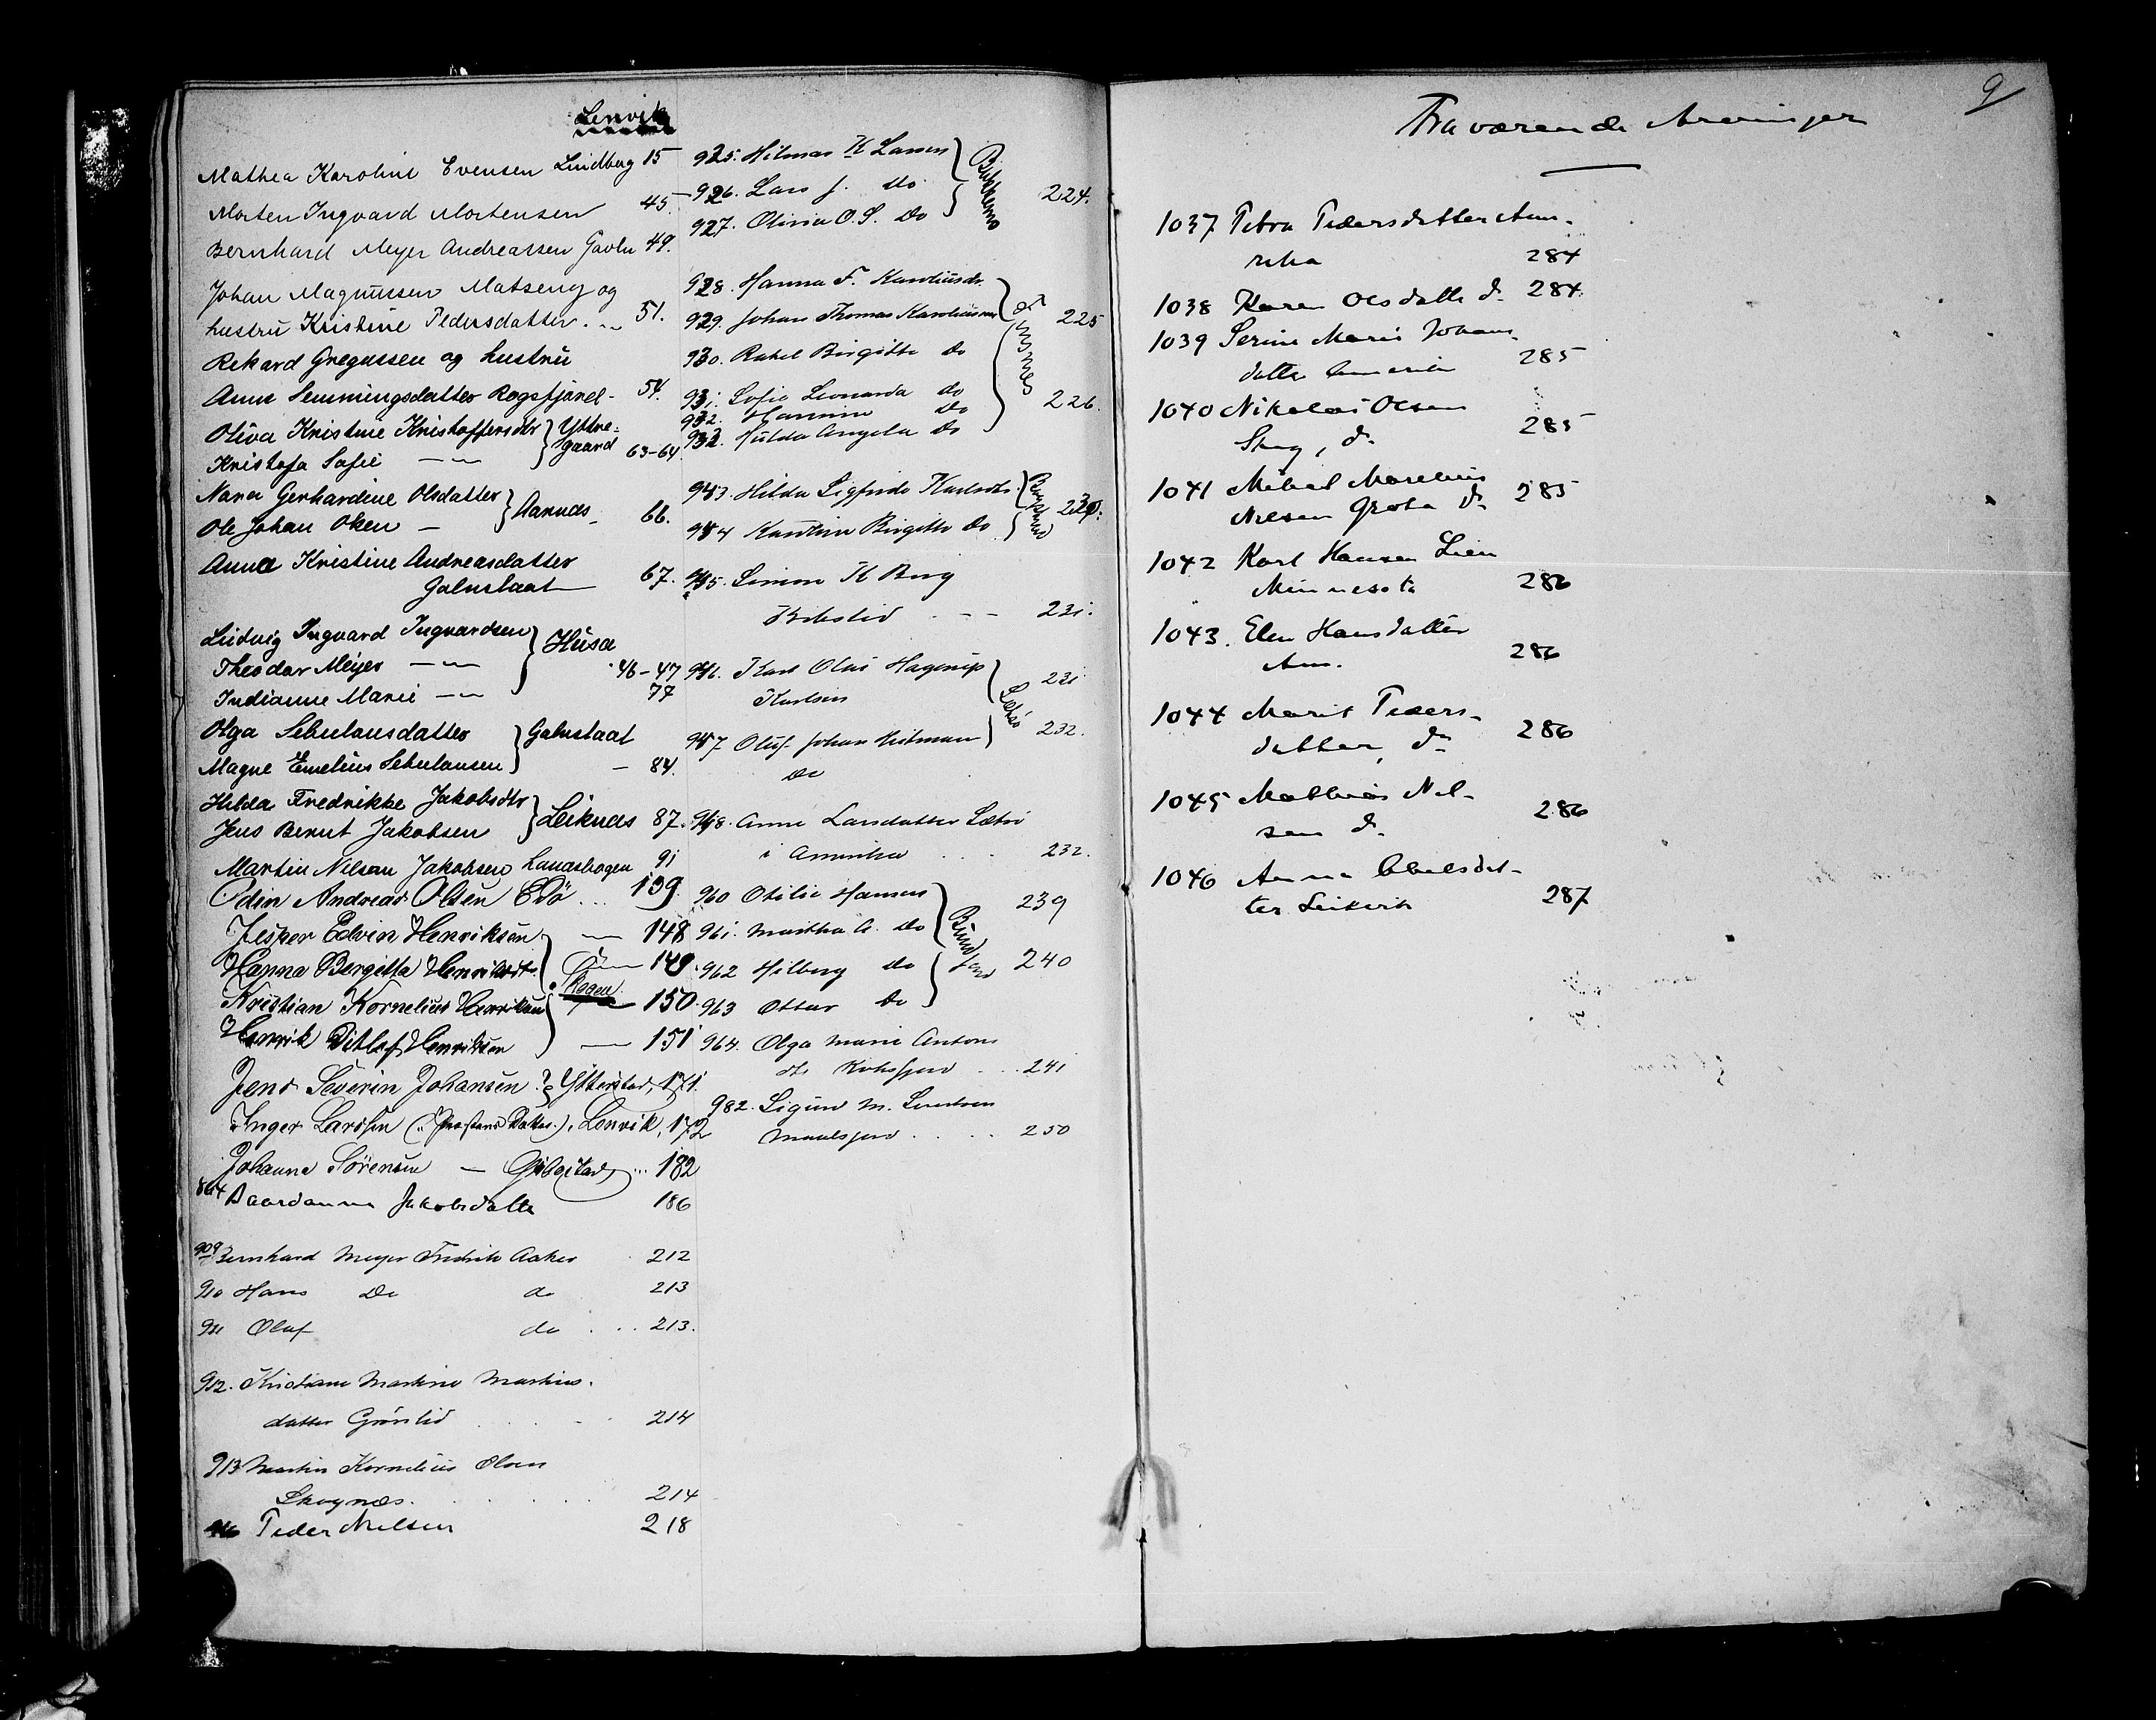 Lenvik
Mathea Karoline Evensen Lindberg 15
Morten Ingvard Mortensen 45
Bernhard Meyer Andreassen Gavln 49.
Johan Magnussen Matseng og
hustru Kristine Pedersdatter. 51.
Rekard Gregussen og hustru
Anne Hemmingsdatter Rogsfjorel- 54.
Oliva Kristine Kristoffersdtr } Yttre-
Kristofa Sofie — " — gaard 63-64
Nana Gerhardine Olsdatter } Aanæs
Ole Johan Olsen — 66.
Anna Kristine Andreasdatter
Galnstaat 67.
Ludvig Ingvard Ingvardsen } Husa
Theodor Meyer — " — 46-47
Indianne Marie — " — 77
Olga Sebulonsdatter } Galnstaat
Magne Emelius Sebulonsen — 84.
Hilda Fredrikke Jakobsdtr } Leiknæs 87.
Jens Bernt Jakobsen
Martin Nilsen Jakobsen Laukshogen 91
Odin Andreas Olsen Edø ... 109.
Jesper Edvin Henriksen — 148
Hanna Bergitta Henriksdt. 149
Skogen
Kristian Kornelius Henriksen 150.
Henrik Ditlef Henriksen — 151
Jens Severin Johansen. Ytterstad, 171.
Inger Larssen (Prostens Dakas.), Lenvik, 172
Johanna Sørensen — Gibostad, ... 182
864 Baardanna Jakobsdatter 186
909 Bernhard Meyer Fredrik Aaker 212
910 Hans Do do 213
911 Oluf do . . . 213.
912. Kristiane Martine Martins.
datter Grønlid 214
913 Martin Kornelius Olsen
Skognæs. 214
Peder Nielsen 218
925. Hilmar K Larsen }
926. Lars J. do } 224.
927. Olivia O. S. Do
928. Hanna F. Karoliusdr.
929. Johan Thomas Karoliussen } Finsnes 225
930. Rakel Birgitte do
931. Sofie Leonarda do
932. do 226.
932. Hulda Angela Do
943. Hilda Sigfride Karlsdtr.
944 Birgitte Do
945. Simon K Berg
231.
946. Karl Olai Hagerup 231
Karlsen
947 Oluf Johan Hilmar } 232.
do
948. Anne Larsdatter Sætri
i Amerika . . . 232.
960 Otilie Hansen 239
961. Martha A. do
962 Hilberg do 240
963 Ottar Do
964. Olga Marie Antons
dtr ... 241
982. Sigurd M. Sivertsen
Maalsjord . . . . 250
9
Fraværende Arvinger
1037 Petra Pedersdatter Ame-
rika 284
1038 Karen Olsdatter do 284.
1039 Serine Marie Johans-
datter Amerika 285
1040 Nikolai Olsen
Skog, do 285
1041 Mikal Marelius
Nilsen Grota do 285
1042 Karl Hansen Lien
Minnesota 286
1043. Elen Hansdatter
Am. 286
1044 Marit Peders-
datter, do 286
1045 Mathias Nil-
sen do 286
1046 Anna Abelsdat-
ter Leikvik 287